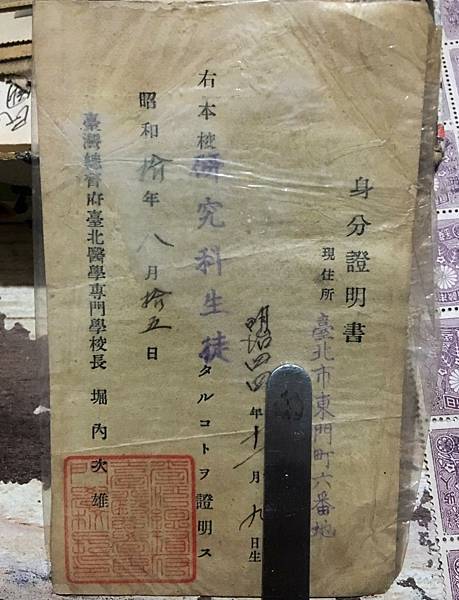 身分證明書
現住所 臺北市東門町六番地
明治四四年十一月九日生
右本校研究科生徒タルコトヲ證明ス
昭和拾年八月拾五日
臺灣總督府臺北醫學專門學校長 堀內次雄